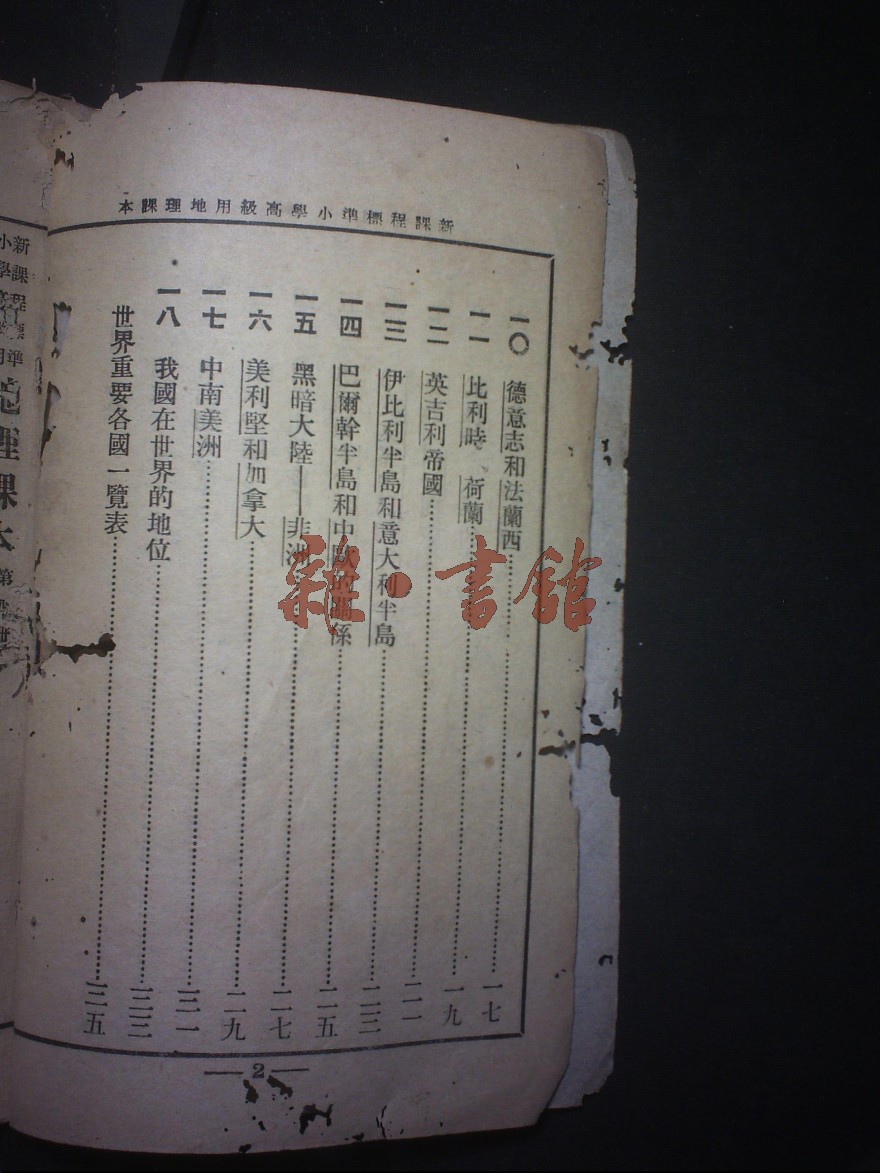 新課程標準小學高級用地理課本
一〇 德意志和法蘭西……一七
一一 比利時、荷蘭……一九
一二 英吉利帝國……二一
一三 伊比利半島和意大利半島……二三
一四 巴爾幹半島和中歐的關係……二五
一五 黑暗大陸——非洲……二七
一六 美利堅和加拿大……二九
一七 中南美洲……三一
一八 我國在世界的地位……三三
世界重要各國一覽表……三五
—2—
雜·書館